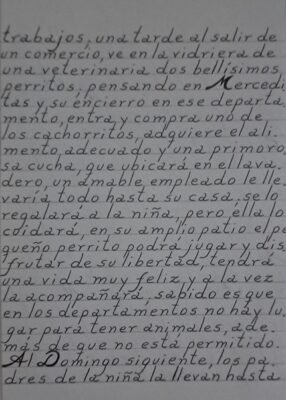 trabajos, una tarde al salir de
un comercio, ve en la vidriera de
una veterinaria dos bellísimos
perritos, pensando en Mercedi
tas y su encierro en ese departa
mento, entra, y compra uno de
los cachorritos, adquiere el ali-
mento, adecuado y una primoro
sa cucha, que ubicará en el lava
dero, un amable, empleado le lle
varía todo hasta su casa, se lo
regalará a la niña, pero ella lo
cuidará, en su amplio patio el pe
queño perrito podrá jugar y dis
frutar de su libertad, tendrá
una vida muy feliz, y a la vez
la acompañará, sabido es que
en los departamentos no hay lu
gar para tener animales, ade
más de que no está permitido.
Al Domingo siguiente, los pa
dres de la niña la llevan hasta